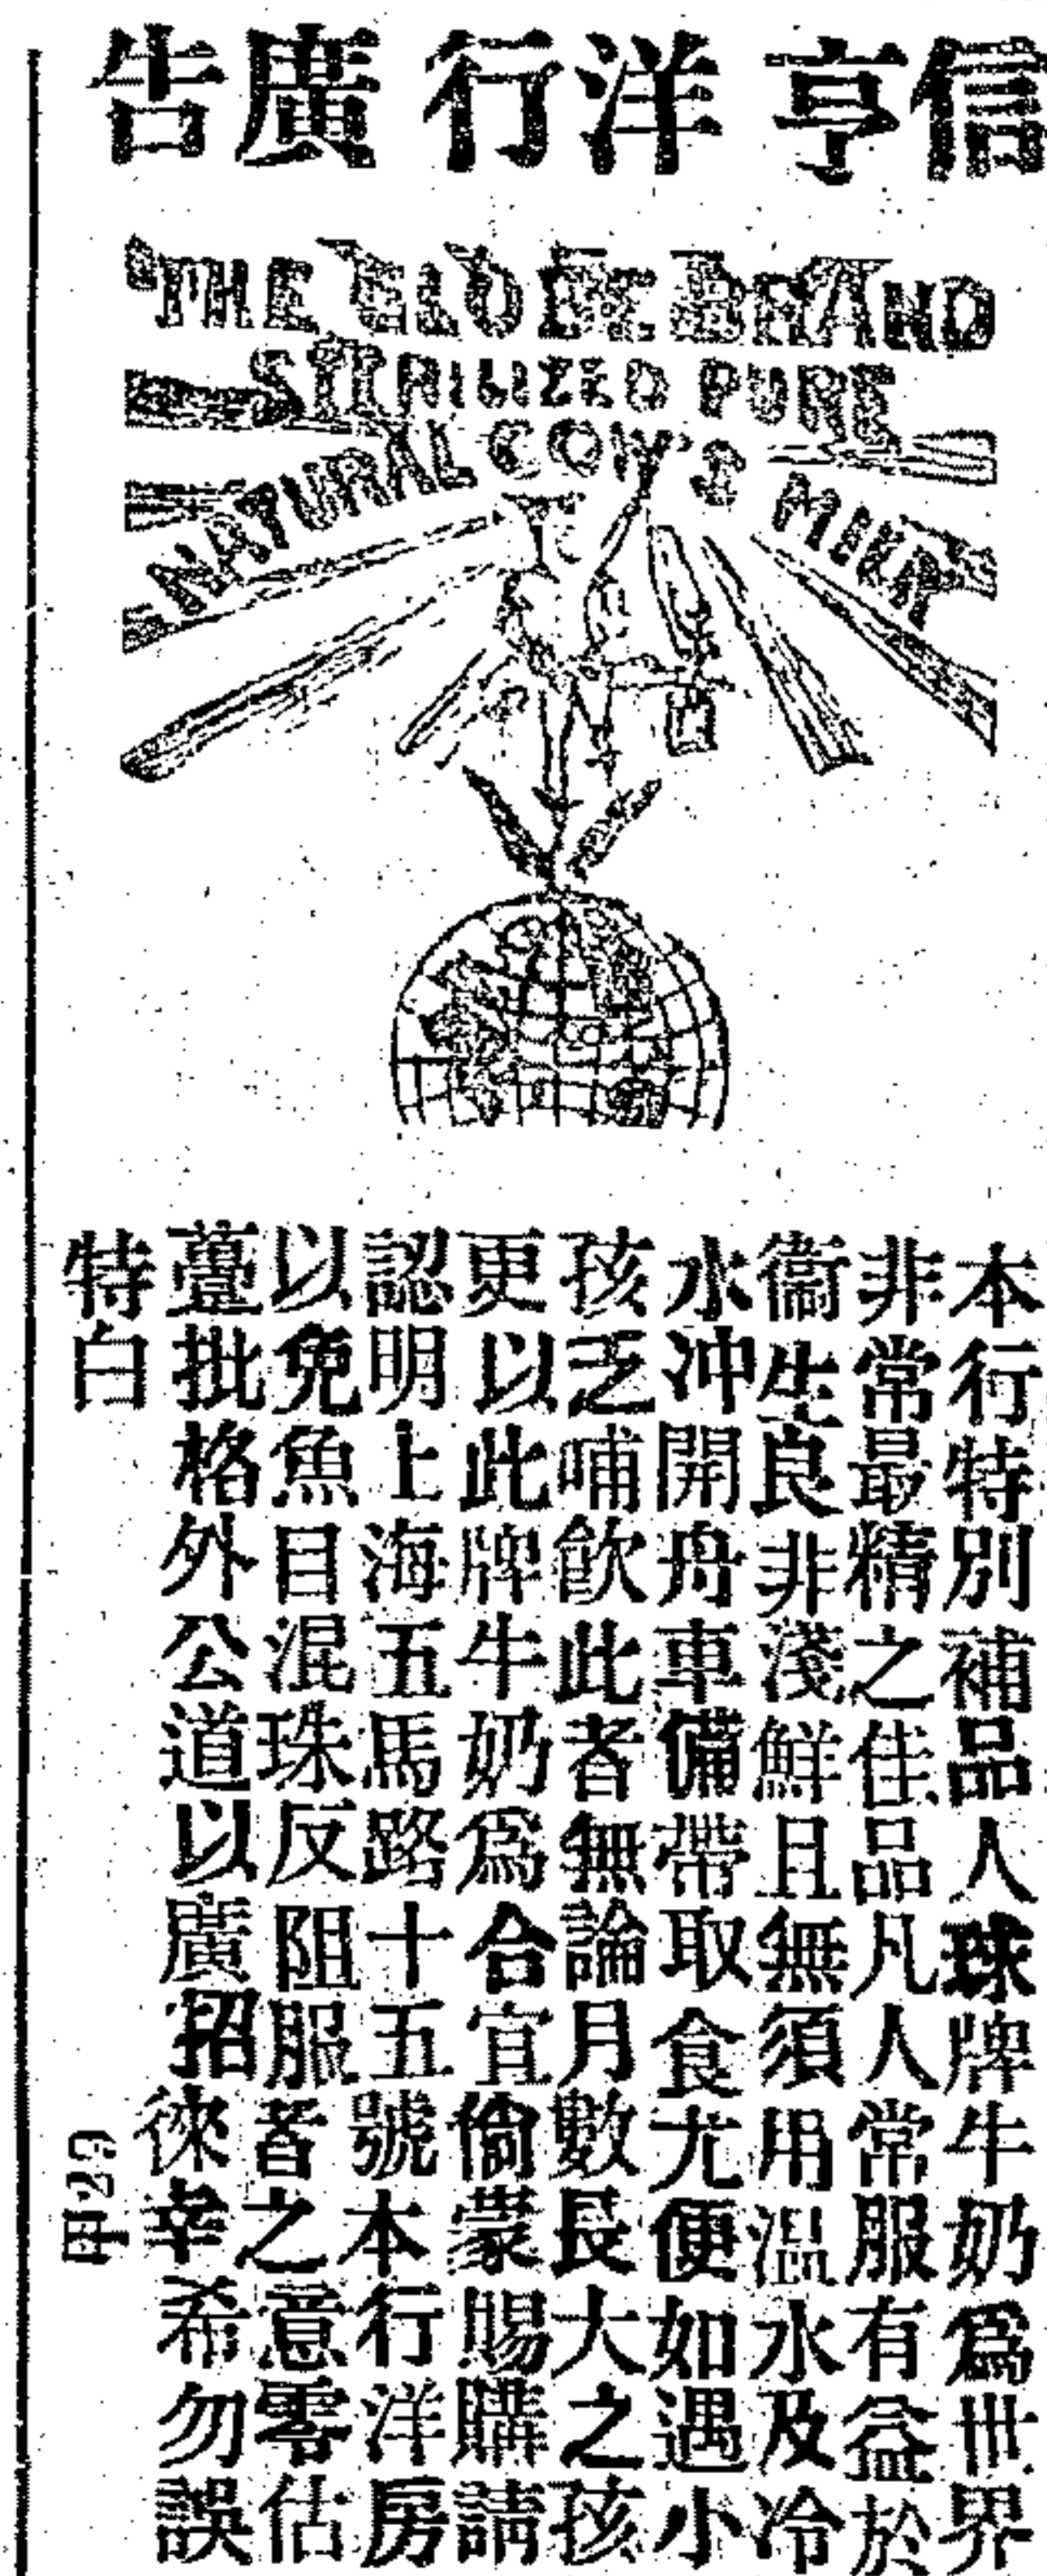 信亨洋行廣告
"THE GLOBE BRAND
STERILIZED PURE
NATURAL COW'S MILK
本行特別補品人球牌牛奶爲世界
非常最精之佳品凡人常服有益於
衞生良非淺鮮且無須用溫水及冷
水冲開舟車備帶取食尤便如遇小
孩乏哺飲此者無論月數長大之孩
更以此牌牛奶爲合宜倘蒙賜購請
認明上海五馬路十五號本行洋房
以免魚目混珠反阻服者之意零估
躉批格外公道以廣招徠幸希勿誤
特白
再29